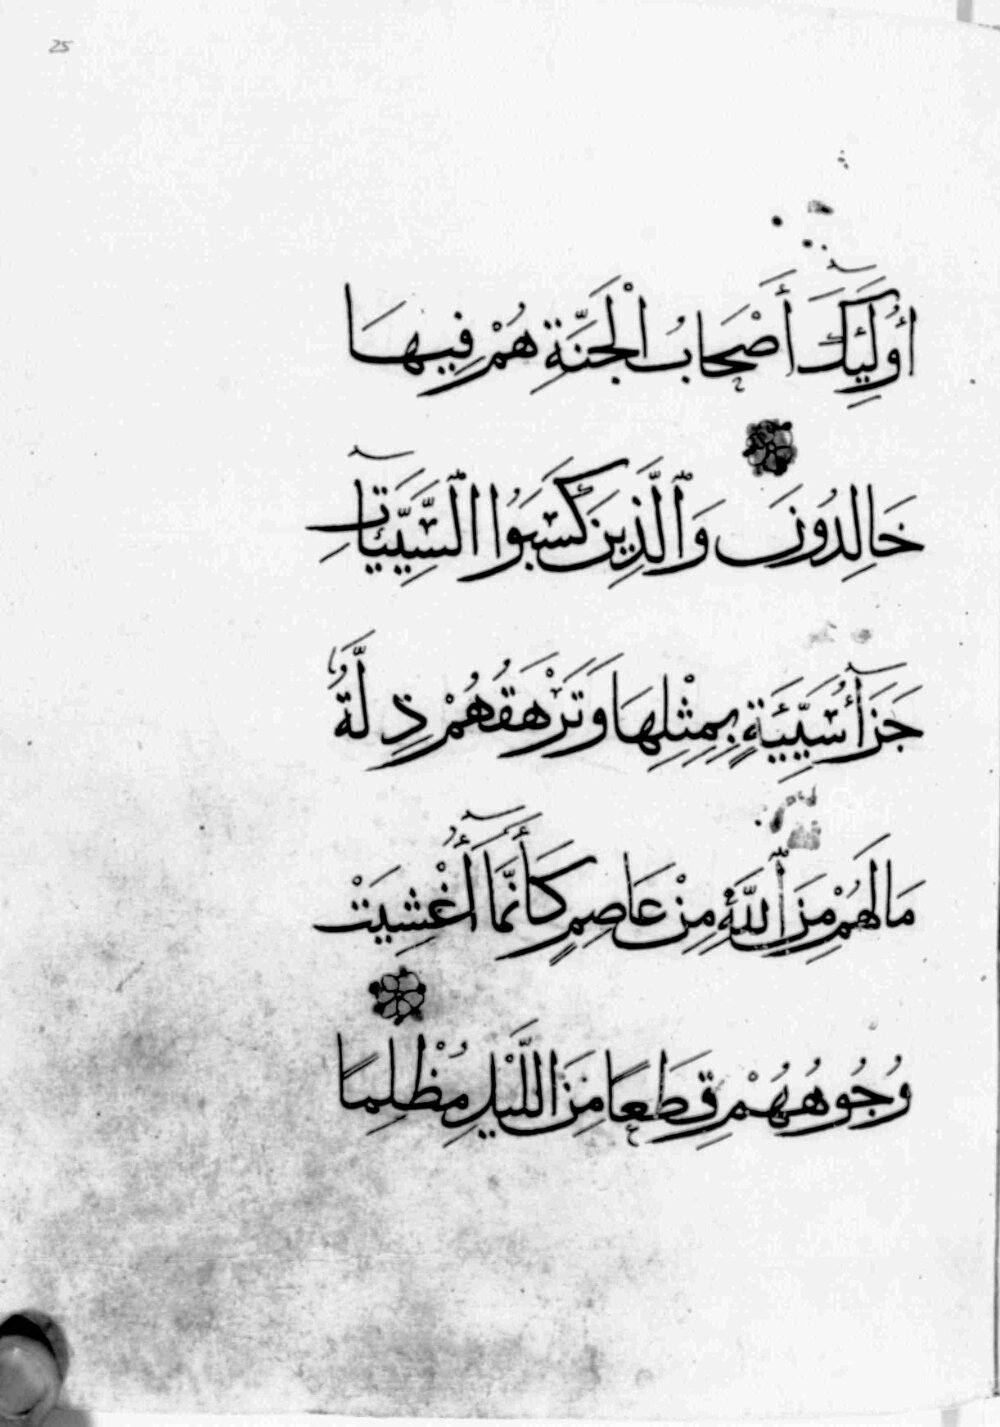 25
أُوْلَٰٓئِكَ أَصْحَابُ الْجَنَّةِ هُمْ فِيهَا
خَالِدُونَ وَٱلَّذِينَ كَسَبُوا ٱلسَّيِّئَاتِ
جَزَآءُ سَيِّئَةٍ بِمِثْلِهَا وَتَرْهَقُهُمْ ذِلَّةٌ
مَا لَهُمْ مِنَ ٱللَّهِ مِنْ عَاصِمٍ كَأَنَّمَآ أُغْشِيَتْ
وُجُوهُهُمْ قِطَعًا مِنَ اللَّيْلِ مُظْلِمًا